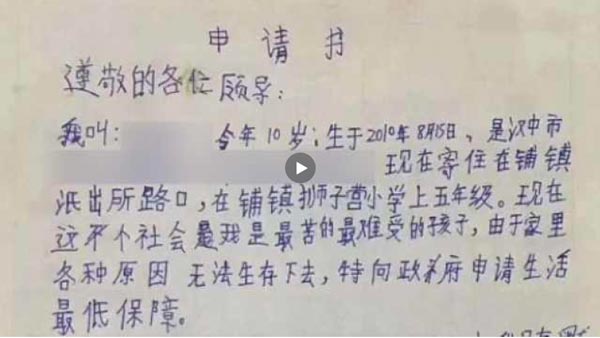 申请书
遵敬的各位领导：
我叫： 今年10岁；生于2010年8月15日，是汉中市
现在寄住在铺镇
派出所路口，在铺镇狮子营小学上五年级。现在
这个社会是我是最苦的最难受的孩子，由于家里
各种原因 无法生存下去，特向政府申请生活
最低保障。